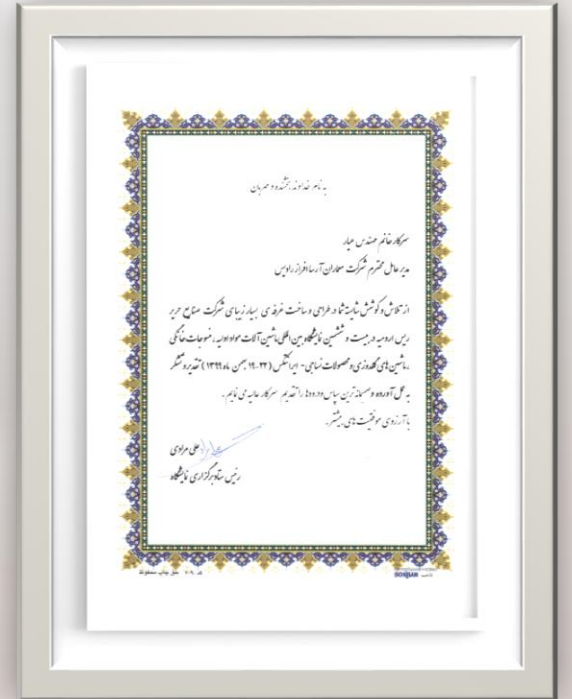 به نام خداوند بخشنده و مهربان
سرکار خانم مهندس عیار
مدیر عامل محترم شرکت معماران آرسا افراز رادیس
از تلاش و کوشش شایسته شما در طراحی و ساخت غرفه ی بسیار زیبای شرکت صنایع حریر
ریس ارومیه در بیست و ششمین نمایشگاه بین المللی ماشین آلات مواد اولیه ، منسوجات خانگی
، ماشین های گلدوزی و محصولات نساجی - ایرانتکس ( ۲۲-۱۹ بهمن ماه ۱۳۹۹ ) تقدیر و تشکر
به عمل آورده و صمیمانه ترین سپاس و درودها را تقدیم سرکار عالیه می نمایم .
با آرزوی موفقیت های بیشتر .
علی مرادی
رئیس ستاد برگزاری نمایشگاه
حق چاپ محفوظ